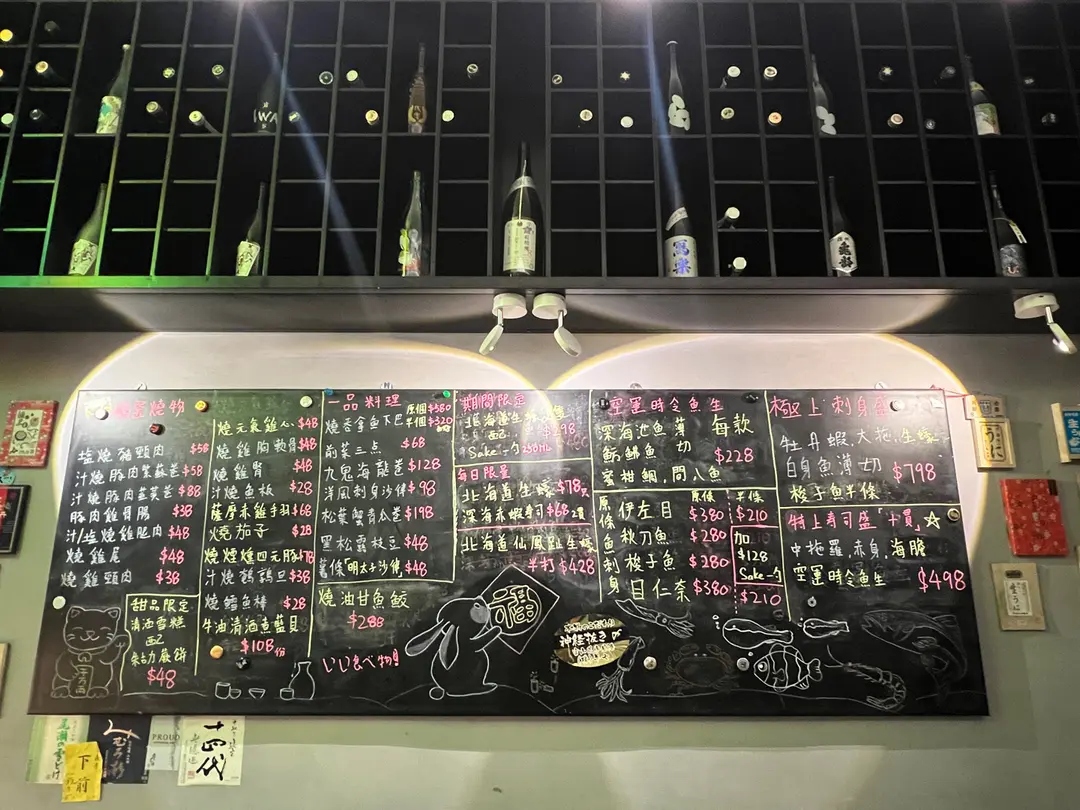 燒物
塩燒豬頸肉 $58
汁燒豚肉紫蘇卷 $58
汁燒豚肉金菇卷 $88
豚肉雞腎腸 $38
汁/塩燒雞肶肉 $48
燒雞尾 $48
燒雞頸肉 $38
甜品限定
清酒雪糕
配
朱古力蕨餅
$48
燒元氣雞心 $48
燒雞胸軟骨 $48
燒雞腎 $48
汁燒魚板 $28
薩摩赤雞手羽 $68
燒茄子 $28
燒煙燻四元豚 $78
汁燒鵪鶉旦 $38
燒鱈魚棒 $28
牛油清酒煮藍貝
$108/份
一品料理
原個 $580
半個 $320
燒吞拿魚下巴
前菜三点 $68
九鬼海龍卷 $128
洋風刺身沙律 $98
松葉蟹青瓜卷 $198
黑松露枝豆 $48
薯條 明太子沙律 $48
燒油甘魚鮫
$288
いい食べ物!
期間限定
北海道生
配 $98
Sake一勺 250ML
每日限量
北海道生蠔 $78/只
深海赤蝦壽司 $68/2貫
北海道仙鳳趾生蠔
半打 $428
福
空運時令魚生
深海池魚薄切 每款
$228
鰤魚
蜜柑鯛,間八魚
原條 半條
原條魚刺身
伊左目 $380 $210
秋刀魚 $280
梭子魚 $280
目仁奈 $380 $210
加
$128
Sake一勺
極上刺身盛
牡丹蝦,大拖,生蠔
白身魚薄切 $798
梭子魚半條
特上壽司盛「十貫」☆
中拖羅,赤身,海膽
空運時令魚生 $498
神経抜き
IWA
寫樂
PROUD
十四代
下前